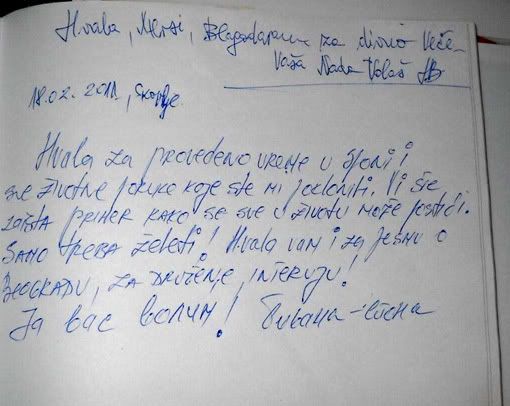 Hvala, Mersi, Blagodaram za divno veče
Vaša Nada
18.02.2011, Skopje
Hvala za provedeno vreme u i
sve životne poruke koje ste mi poklonili. Vi ste
zaista primer kako se sve u životu može postići.
Samo treba želeti! Hvala vam i za pesmu o
Beogradu, za druženje, intervju!
Ja вас волим!